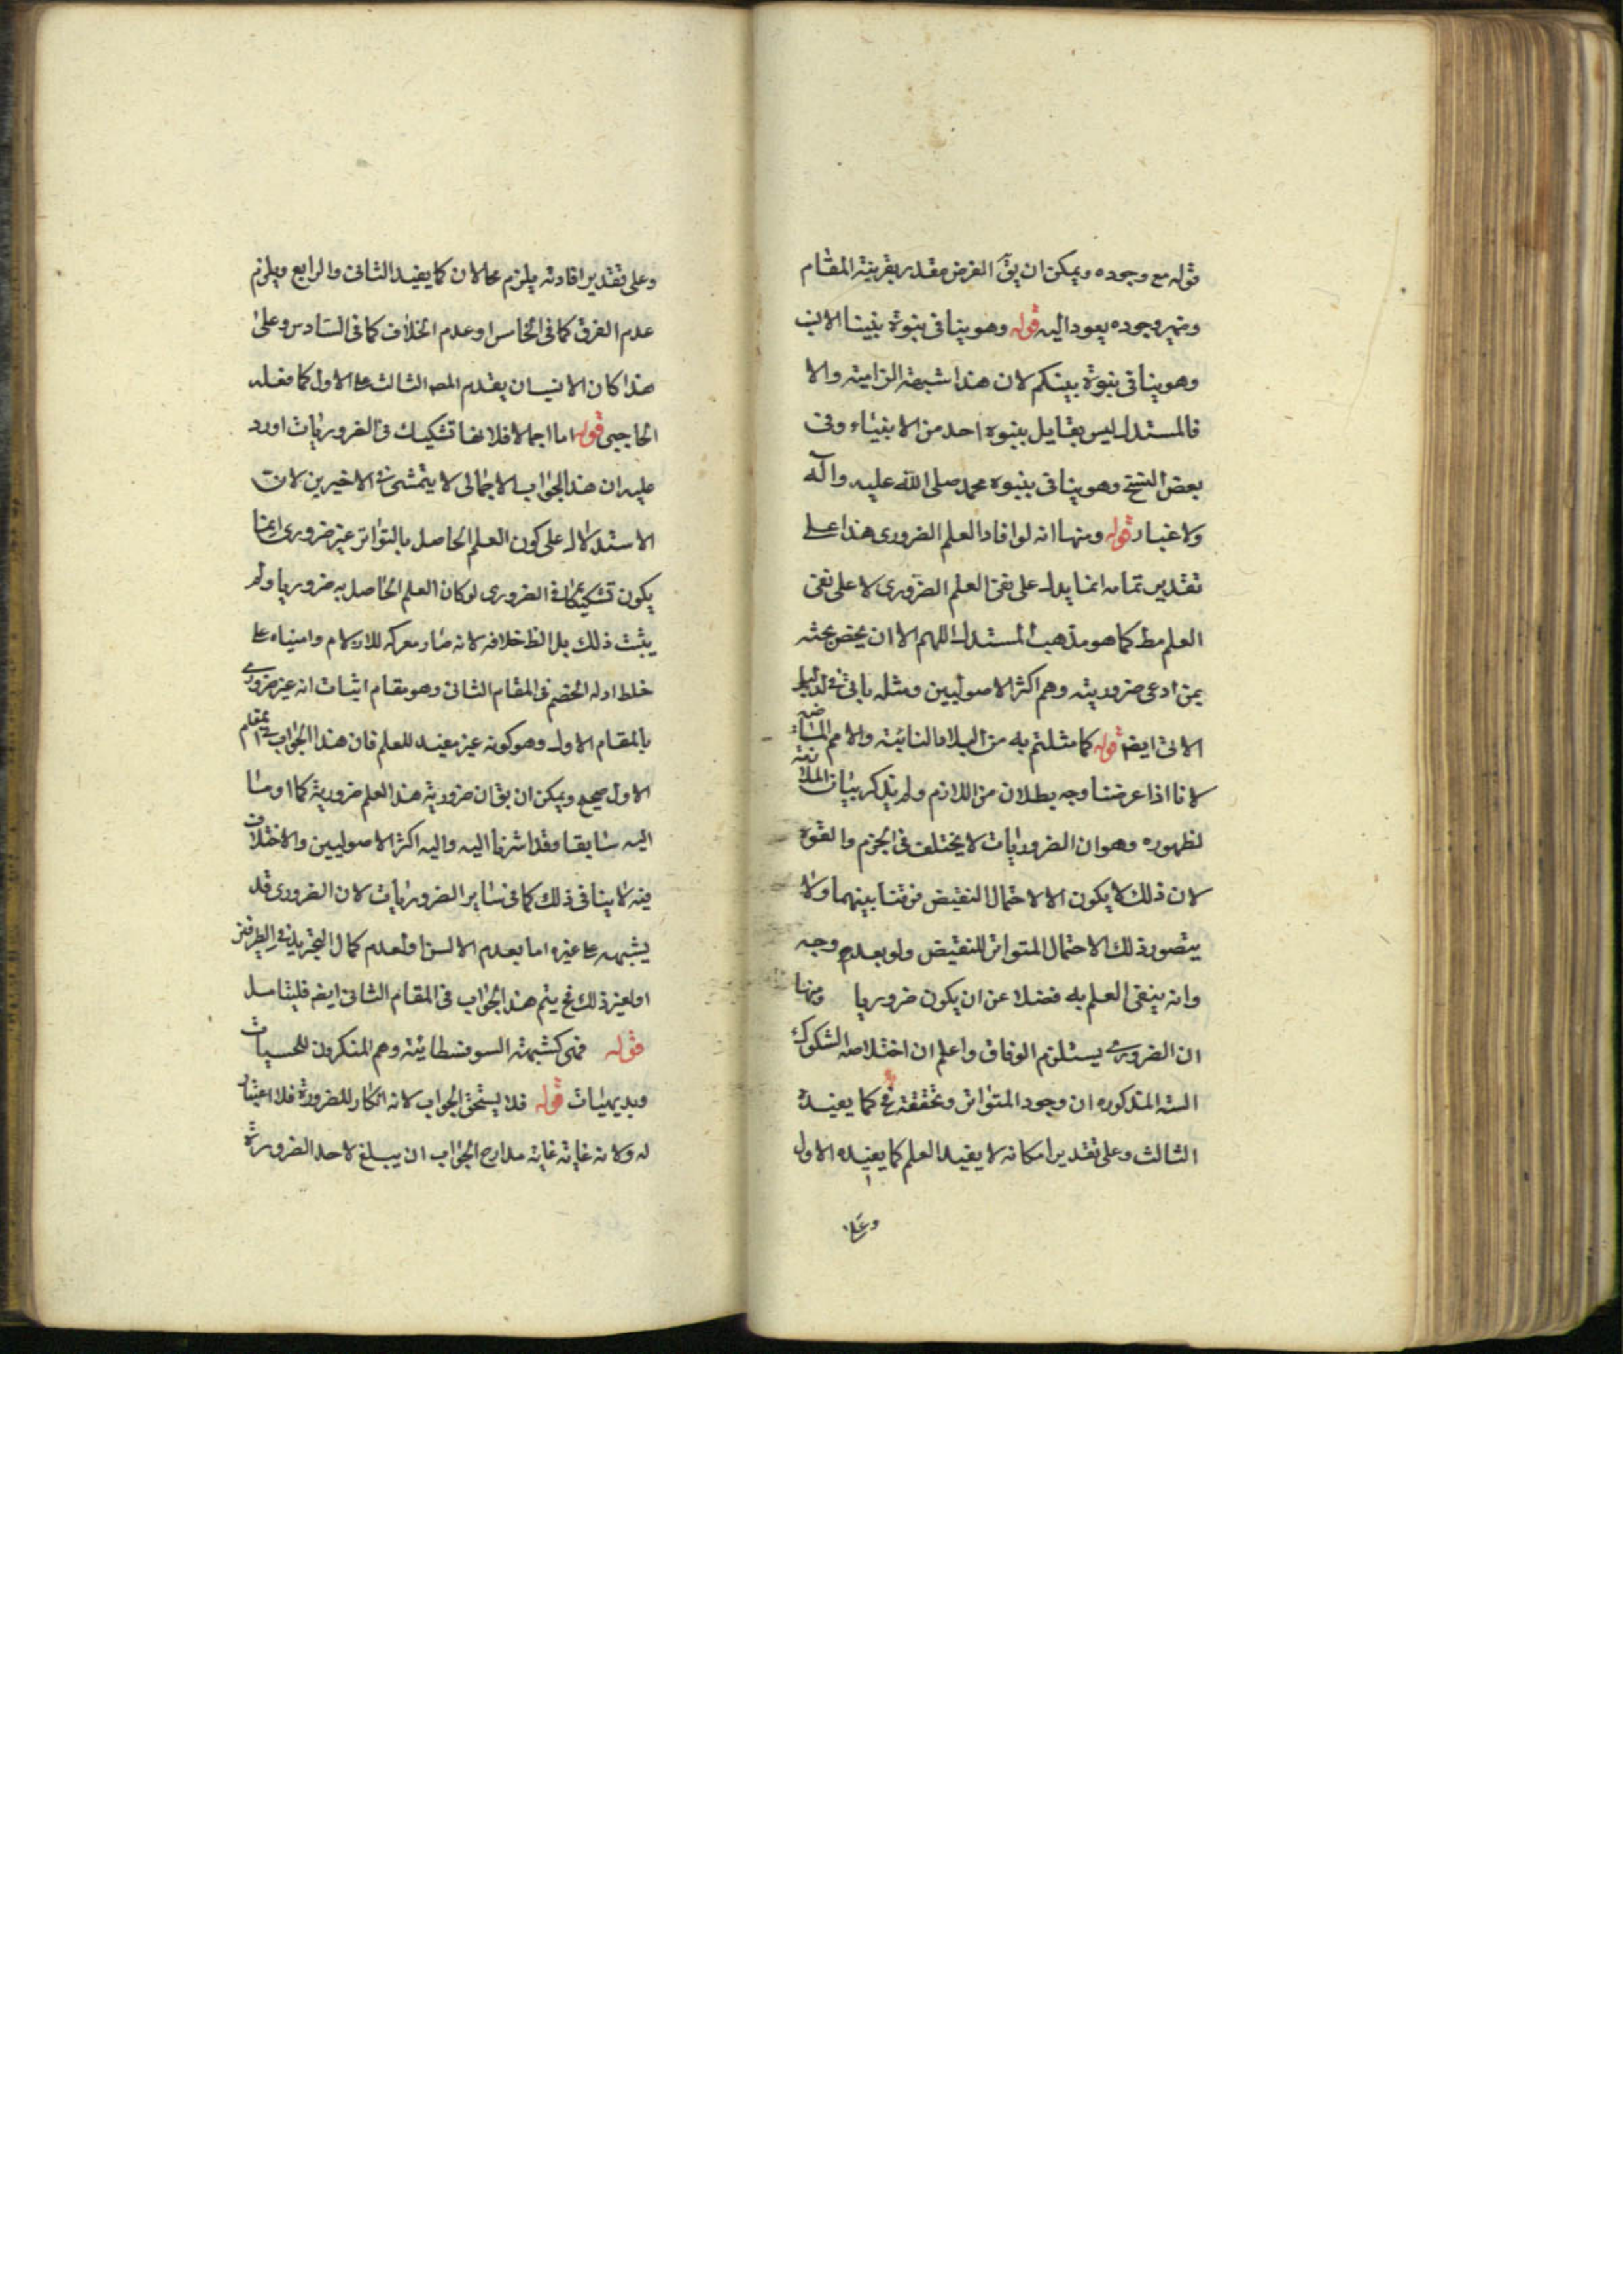 قوله مع وجوده ويمكن ان يق الغرض مقدر بقرينة المقام
وضمير وجوده يعود اليه قوله وهو ينافى بنبوة نبينا الانب
وهو ينافى بنبوة نبيكم لان هذا شبهة الزامية والا
فالمستدل ليس بقايل بنبوه احد من الانبياء وفى
بعض النسخ وهو ينافى بنبوه محمد صلى الله عليه وآله
ولا غبار قوله ومنها انه لو افاد العلم الضرورى هذا على
تقدير تمامه انما يدل على نفى العلم الضرورى لا على نفى
العلم مط كما هو مذهب المستدل اللهم الا ان يخص بحثه
بمن ادعى ضروريته وهم اكثر الاصوليين ومثله ياتى فى الدليل
الاتى ايضا قوله كما مثلتم به من البلاد النائية والامم الماضية
لانا اذا عرضنا وجه بطلان من اللازم ولم يذكر بيان الملازمة
لظهوره وهو ان الضروريات لا يختلف فى الجزم والقوة
لان ذلك لا يكون الا لاحتمال النقيض فرقنا بينهما ولا
يتصور ذلك الاحتمال المتواتر للنقيض ولو بعدم وجه
وانه ينفى العلم به فضلا عن ان يكون ضروريا ومنها
ان الضرورى يستلزم الوفاق واعلم ان اختلاصه الشكوك
السته المذكوره ان وجود المتواتر وتحققه مح كما يفيده
الثالث وعلى تقدير امكانه لا يفيد العلم كما يفيده الاول
وعلى
وعلى تقدير افادته يلزم محالان كما يفيد الثانى والرابع ويلزم
عدم الفرق كما فى الخامس او عدم الخلاف كما فى السادس وعلى
هذا كان الانسان يقدم المص الثالث على الاول كما فعله
الحاجبى قوله اما اجمالا فلانها تشكيك فى الضروريات اورد
عليه ان هذا الجواب الاجمالى لا يتمشى فى الاخيرين لان
الاستدلال على كون العلم الحاصل بالتواتر غير ضرورى انما
يكون تشكيكا فى الضرورى لو كان العلم الحاصل به ضروريا ولم
يثبت ذلك بل الظ خلافه لانه صار معركه للاراء ومنياه على
خلط ادله الخصم فى المقام الثانى وهو مقام اثبات انه غير ضرورى
بالمقام الاول وهو كونه غير مفيد للعلم فان هذا الجواب فى المقام
الاول صحيح ويمكن ان يق ان ضرورية هذا العلم ضرورية كما اومئا
اليه سابقا وقد اشرنا اليه واليه اكثر الاصوليين والاختلاف
فيه لا ينافى ذلك كما فى ساير الضروريات لان الضرورى قد
يشتبه على غيره اما بعدم الالس او لعدم كمال التجريد فى الطرفين
او لغير ذلك فح يتم هذا الجواب فى المقام الثانى ايضا فليتامل
قوله فهى كشبهة السوفسطائية وهم المنكرون للحسيات
وبديهيات قوله فلا يستحق الجواب لانه انكار للضرورة فلا اعتبار
له ولانه غاية مدارج الجواب ان يبلغ لاحد الضرورة